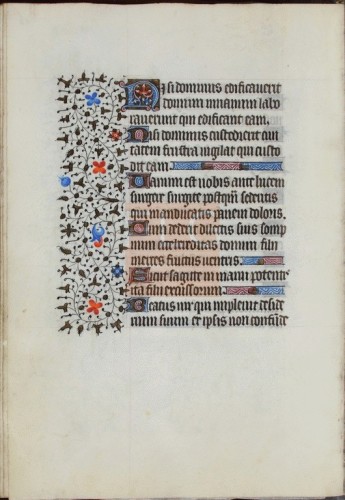 Nisi dominus edificaverit
domum in vanum labo
raverunt qui edificant eam.
Nisi dominus custodierit civi
tatem frustra vigilat qui custo
dit eam.
Vanum est vobis ante lucem
surgere surgite postquam sederitis
qui manducatis panem doloris.
Cum dederit dilectis suis somp
num ecce hereditas domini filii
merces fructus ventris.
Sicut sagitte in manu potentis
ita filii excussorum.
Beatus vir qui implevit deside
rium suum ex ipsis non confunde